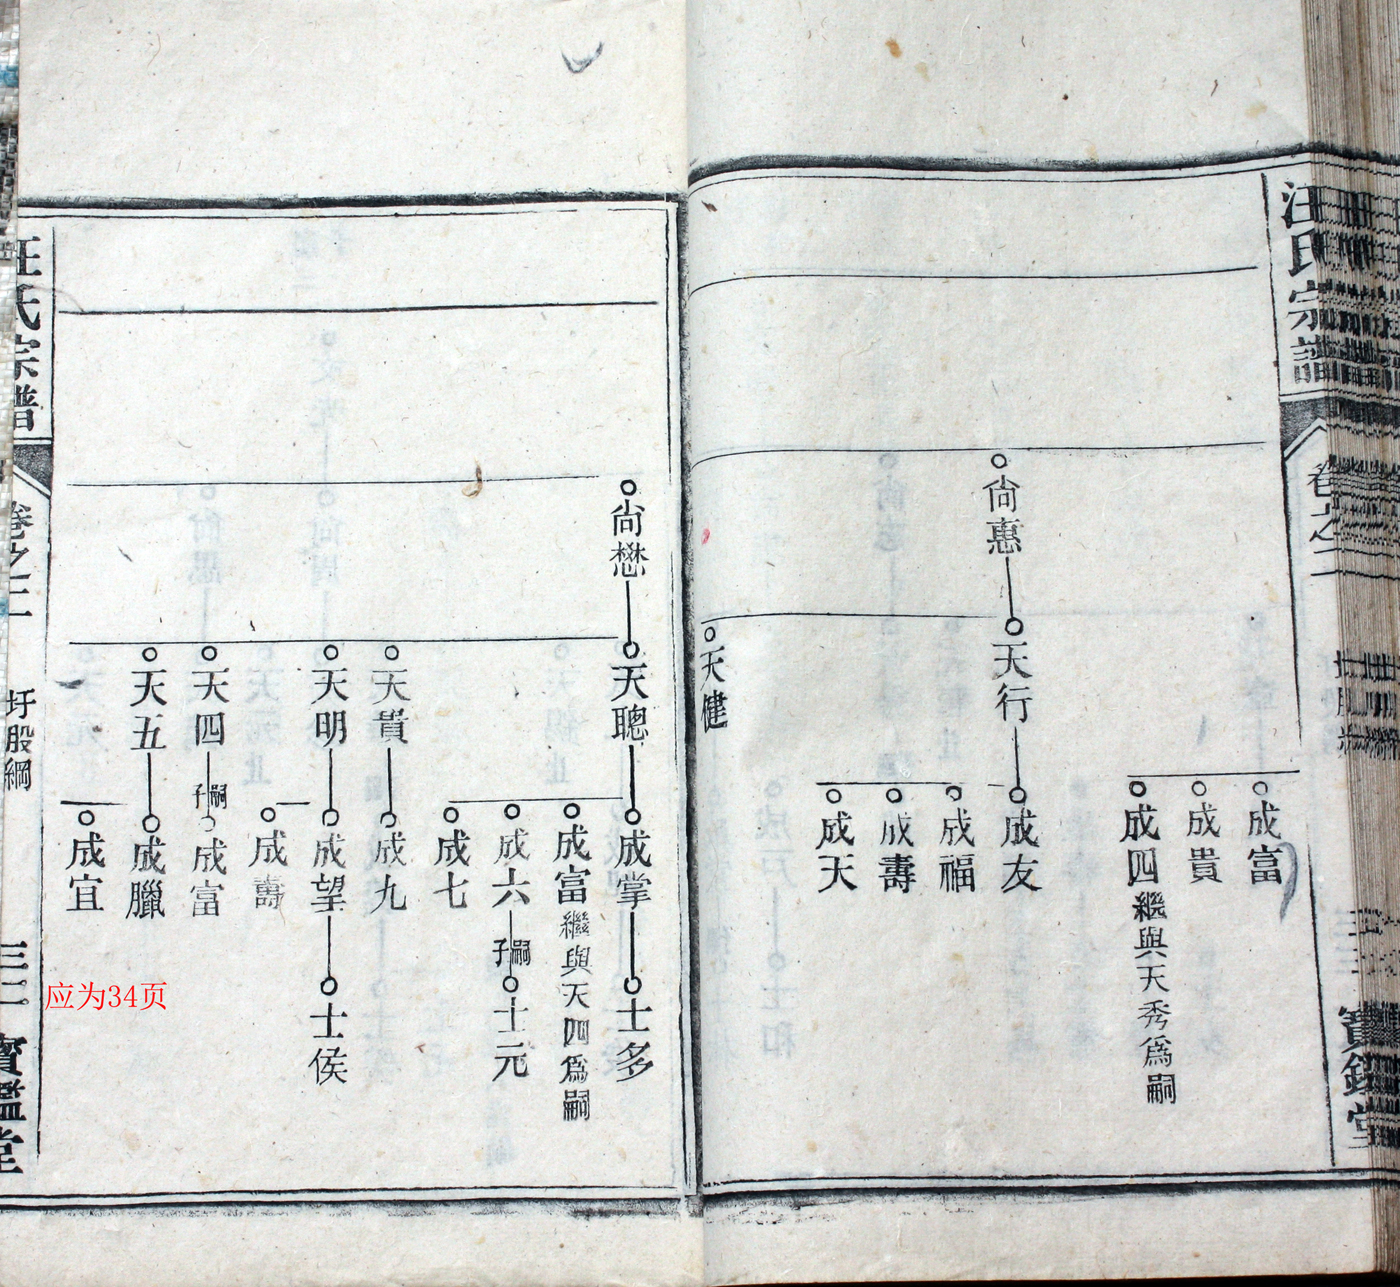 汪氏宗譜
卷之二
寶鑑堂
成富
成貴
成四繼與天秀爲嗣
尙惠
天行
成友
成福
成壽
成天
天健
尙懋
天聰
成掌
士多
成富繼與天四爲嗣
成六
嗣子
士元
成七
天貴
成九
天明
成望
士侯
成壽
天四
嗣子
成富
天五
成臘
成宜
汪氏宗譜
卷之二
圩股綱
三三
寶鑑堂
应为34页